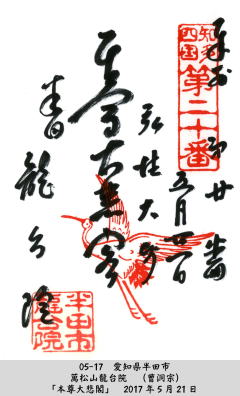 知多
四国
第二十番
五月廿一日
弘法大師
本尊大悲閣
龍台院
半田市
龍台院
05-17　愛知県半田市
萬松山龍台院　（曹洞宗）
「本尊大悲閣」　2017年5月21日